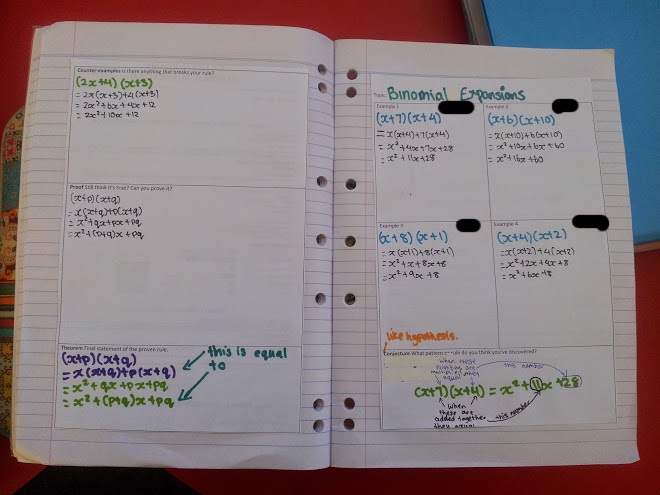 Counter examples Is there anything that breaks your rule?
(2x+4)(x+3)
= 2x(x+3)+4(x+3)
= 2x²+6x+4x+12
= 2x²+10x+12
Proof Still think it's true? Can you prove it?
(x+p)(x+q)
= x(x+q)+p(x+q)
= x²+qx+px+pq
= x²+(p+q)x+pq
Theorem Final statement of the proven rule.
(x+p)(x+q)
= x(x+q)+p(x+q)
= x²+qx+px+pq
= x²+(p+q)x+pq
this is equal
to
Topic: Binomial Expansions
Example 1
(x+7)(x+4)
= x(x+4)+7(x+4)
= x²+4x+7x+28
= x²+11x+28
Example 2
(x+6)(x+10)
= x(x+10)+6(x+10)
= x²+10x+6x+60
= x²+16x+60
Example 3
(x+8)(x+1)
= x(x+1)+8(x+1)
= x²+x+8x+8
= x²+9x+8
Example 4
(x+4)(x+2)
= x(x+2)+4(x+2)
= x²+2x+4x+8
= x²+6x+8
like hypothesis.
Conjecture What pattern or rule do you think you've discovered?
When these
numbers are
multiplied they
equal
this number
(x+7)(x+4) = x²+11x+28
When
these are
added together
they equal
this number